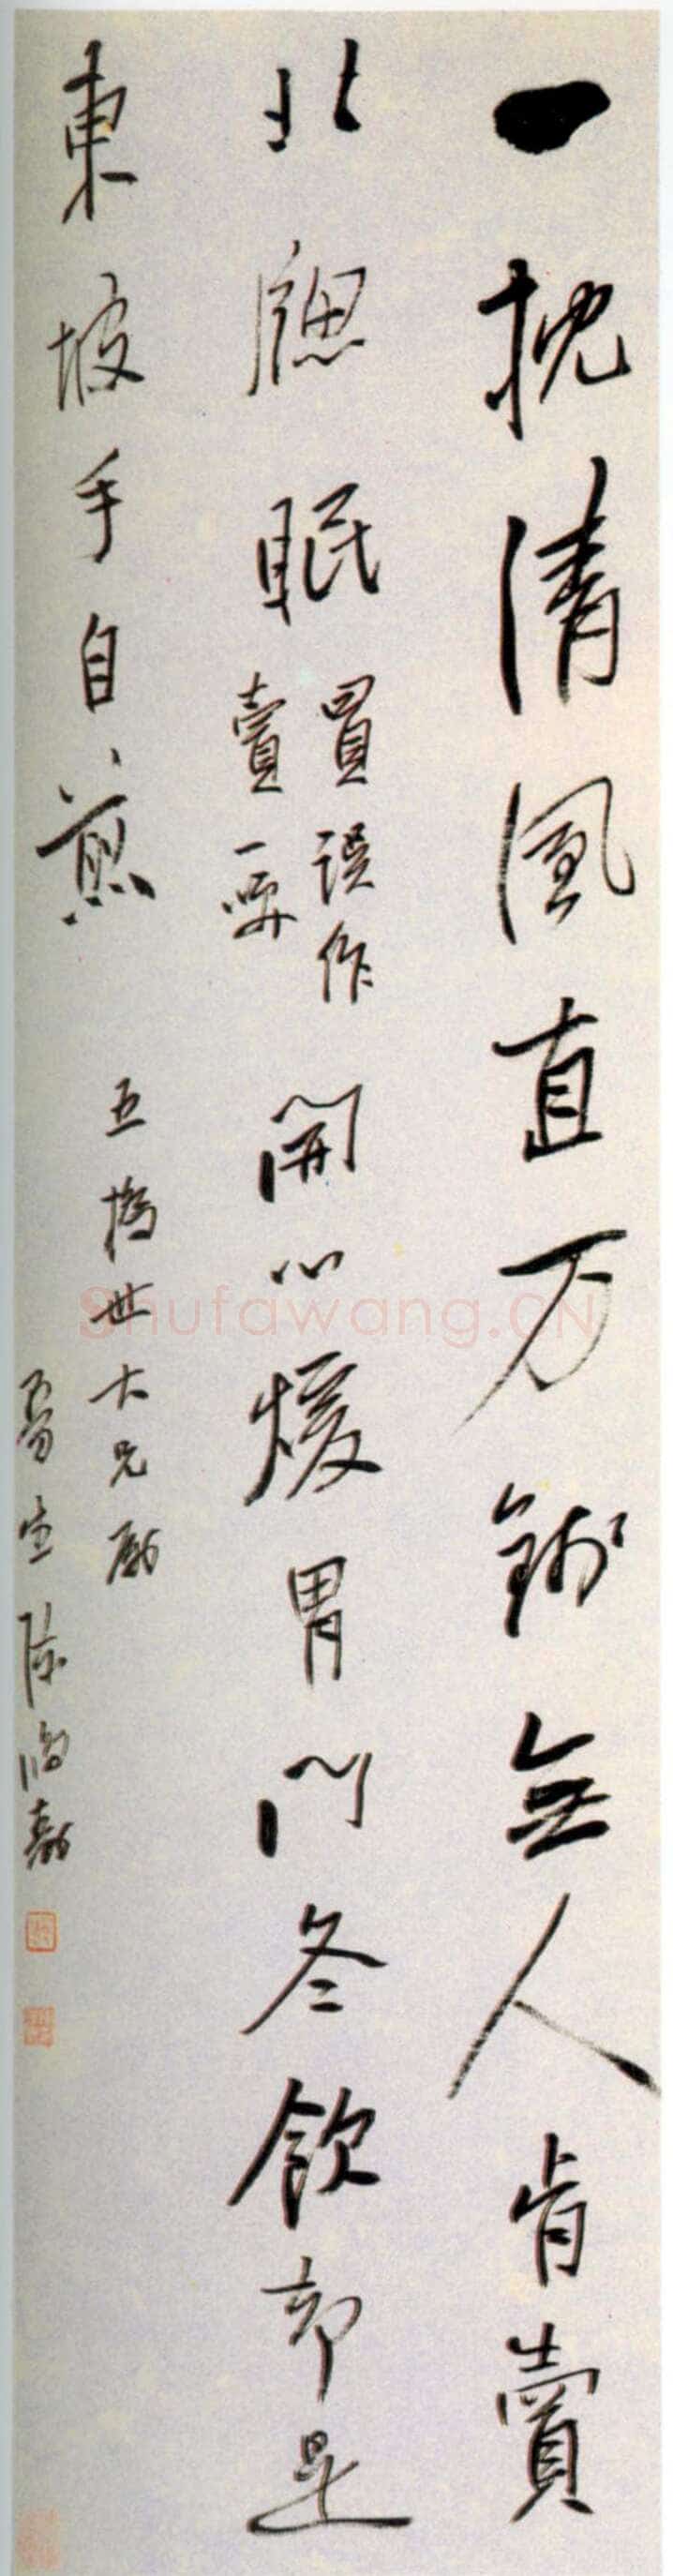 一枕清風直万錢無人肯賣
北牕眠
買誤作
賣一
開心煖胃門冬飲却是
東坡手自煎
五橋世大兄屬
曼生陳鴻壽
Shufawang.CN